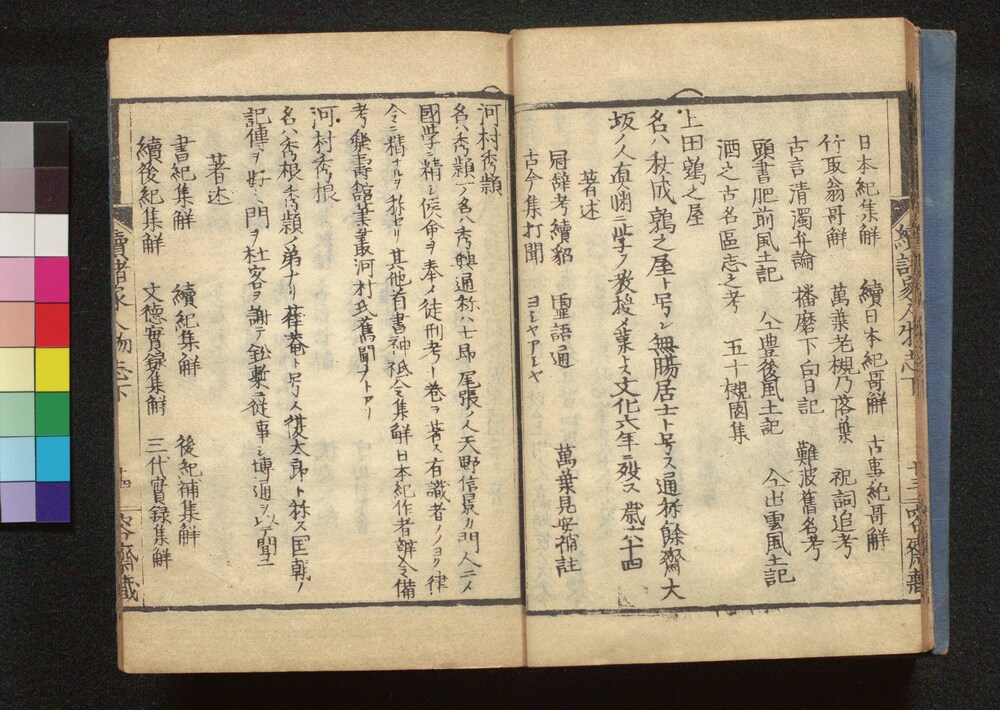 日本紀集解 續日本紀哥解 古事紀哥解
竹取翁哥解 萬葉老槻乃落葉 祝詞追考
古言清濁弁論 播磨下向日記 難波舊名考
頭書肥前風土記 仝豊後風土記 仝出雲風土記
酒之古名區志之考 五十槻園集
上田鶉之屋
名ハ秋成鶉之屋ト号シ無腸居士ト号ス通称餘齋大
坂ノ人直淵ニ学フ教授メ業トス文化六年ニ歿ス歳六十四
著述
冠辞考續貂 霊語通 萬葉見安補註
古今集打聞 ヨシヤアシヤ
河村秀頴
名ハ秀頴一名ハ秀興通称ハ七郎尾張ノ人天野信景カ門人ニメ
國学ニ精シ侯命ヲ奉メ律刑考一巻ヲ著ス有識者ノヨク律
令ニ精ナルヲ称セリ其他首書神祇令集解日本紀作者辨令備
考樂壽舘叢河村氏舊聞アリ
河村秀根
名ハ秀根秀頴ノ弟ナリ葎菴ト号メ復太郎ト称ス国朝ノ
記傳ヲ好ミ門ヲ杜客ヲ謝テ鉛槧ニ従事シ博通ヲ以テ聞ユ
著述
書紀集解 續紀集解 後紀補集解
續後紀集解 文徳實録集解 三代實録集解
續諸家人物志下 十四 容齋蔵